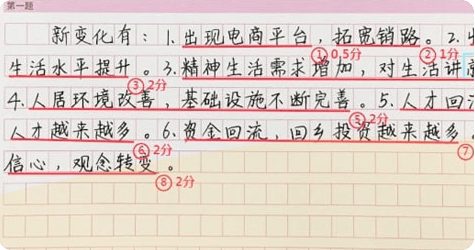 第一题
新变化有：1.出现电商平台，拓宽销路。2.
①0.5分 ②1分
生活水平提升。3.精神生活需求增加，对生活讲
③2分
4.人居环境改善，基础设施不断完善。5.人才回
⑤2分
人才越来越多。6.资金回流，回乡投资越来越多
⑥2分 ⑦
信心，观念转变。
⑧2分